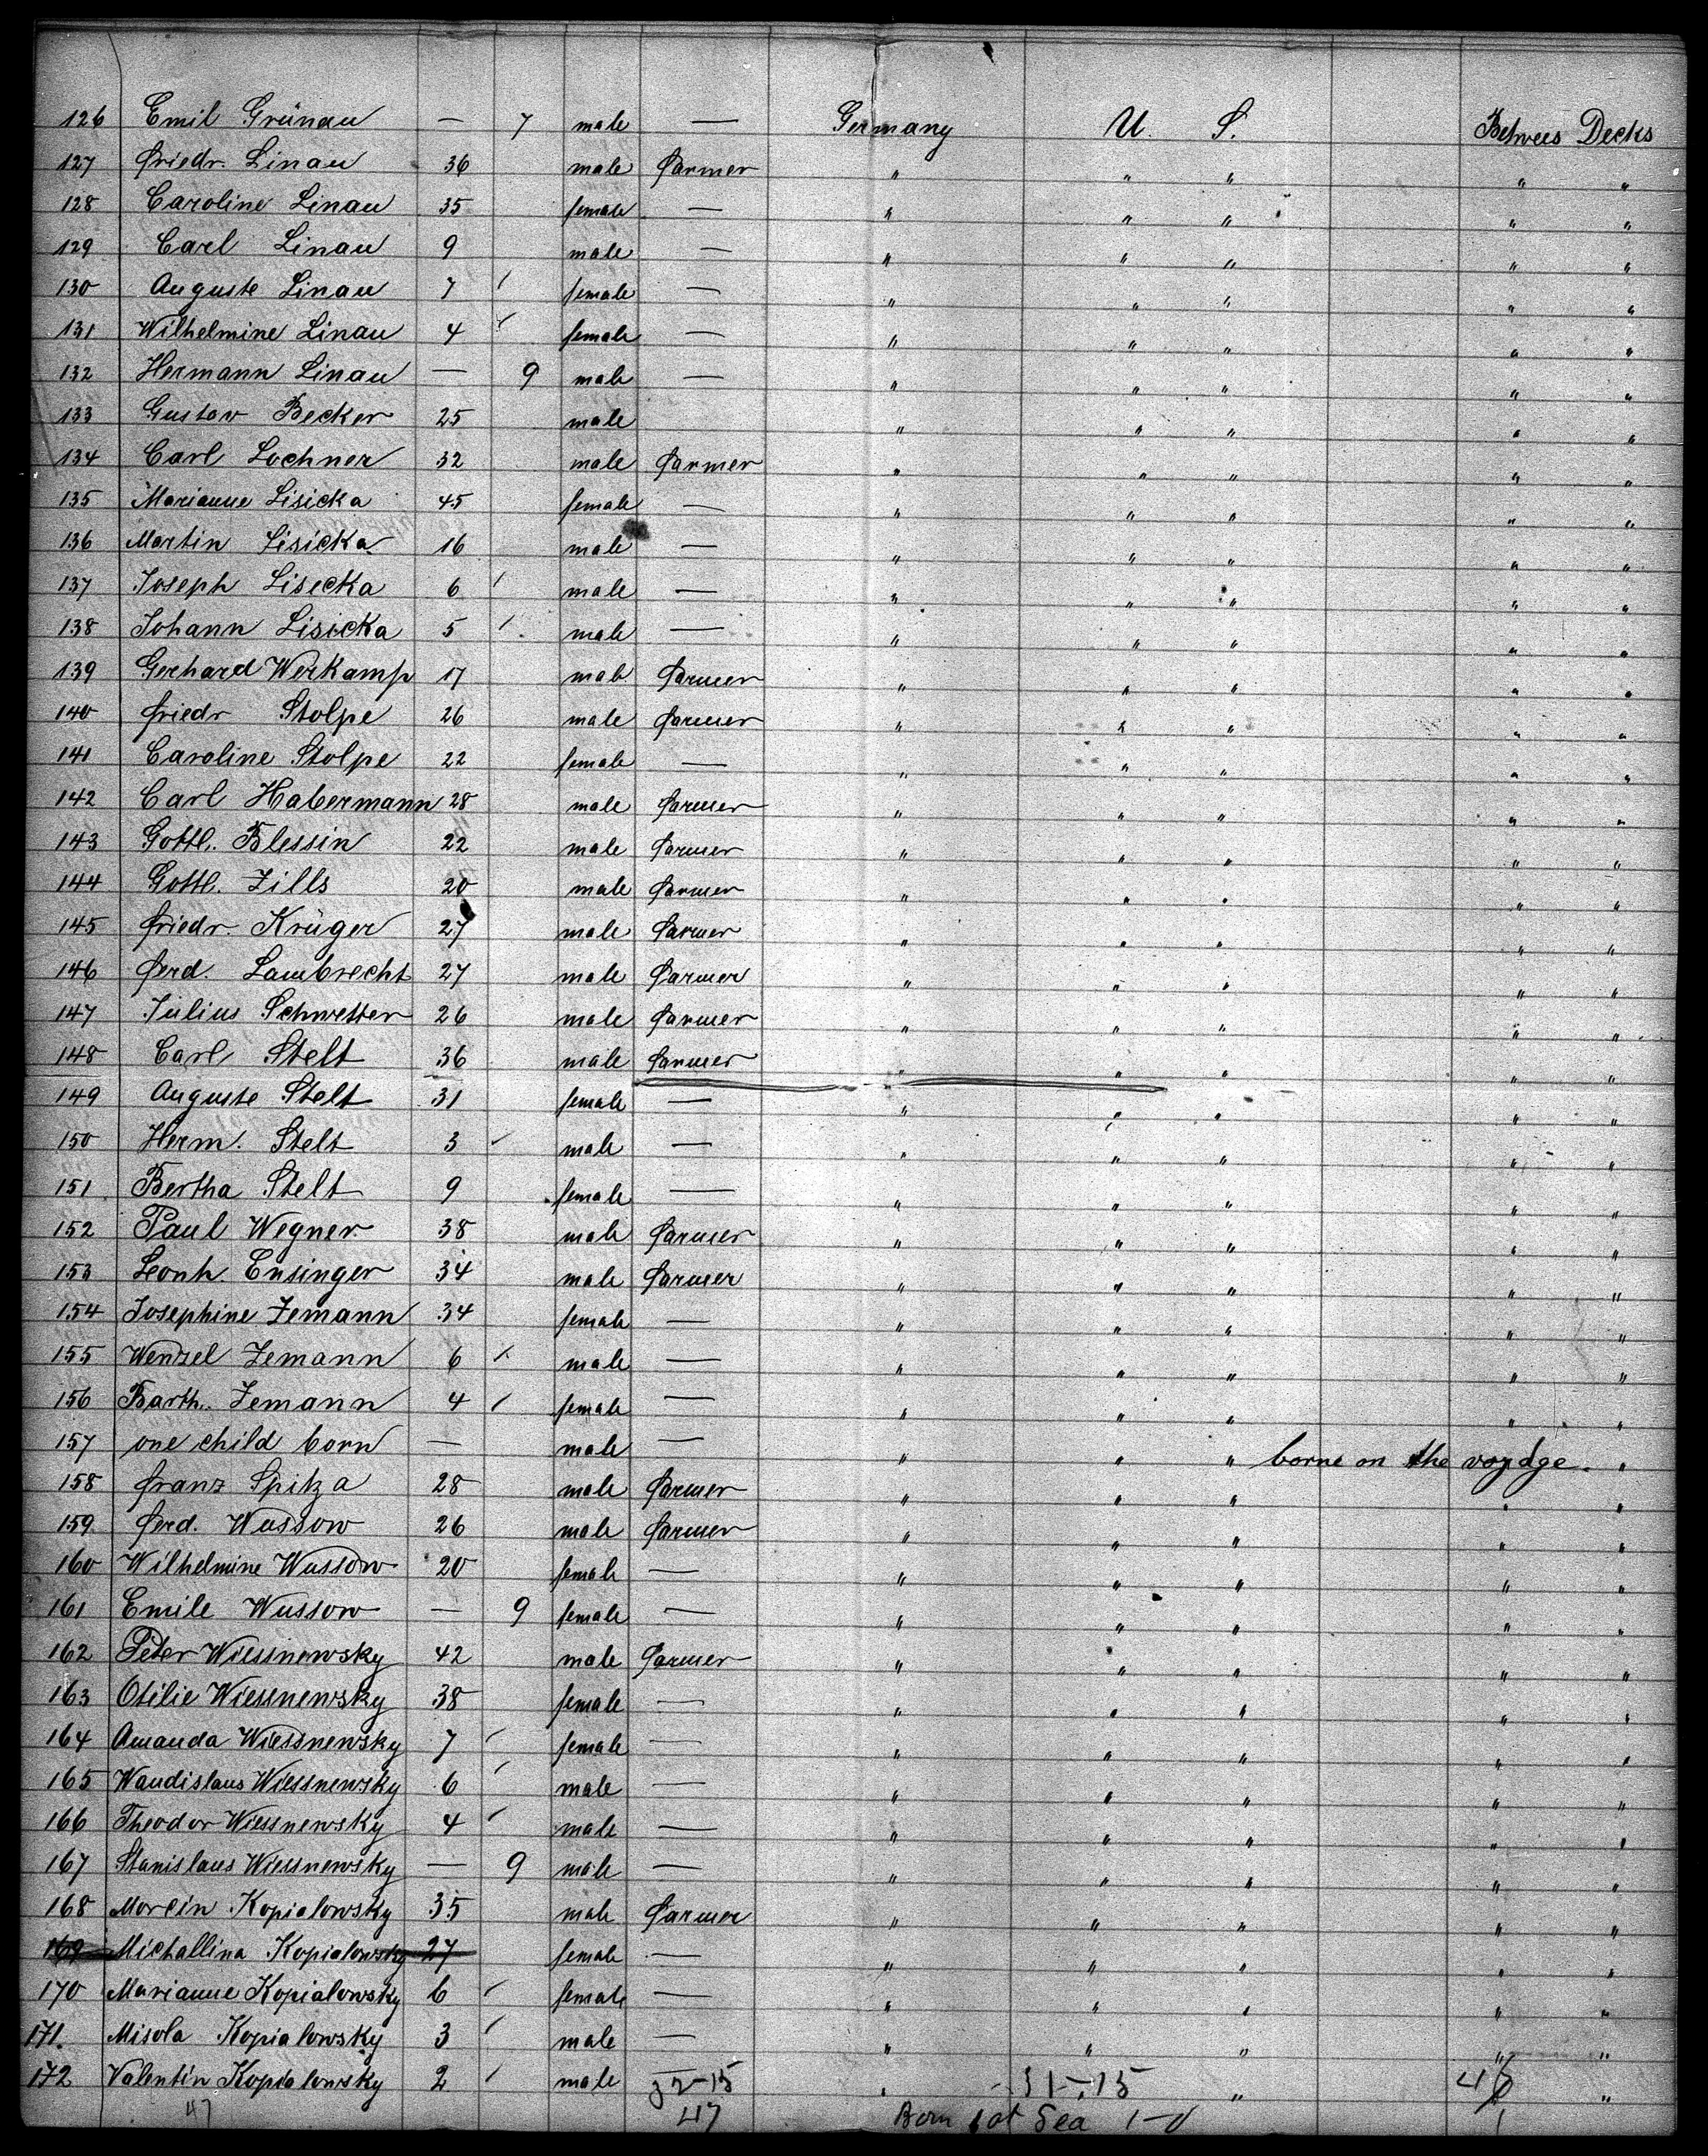 126 Emil Grünau — 7 male — Germany U. S. Betwees Decks
127 Friedr. Linau 36 male Farmer " " " " "
128 Caroline Linau 35 female — " " " " "
129 Carl Linau 9 male — " " " " "
130 Auguste Linau 7 / female — " " " " "
131 Wilhelmine Linau 4 / female — " " " " "
132 Hermann Linau — 9 male — " " " " "
133 Gustav Becker 25 male " " " " "
134 Carl Lochner 32 male Farmer " " " " "
135 Marianne Lisicka 45 female — " " " " "
136 Martin Lisicka 16 male — " " " " "
137 Joseph Lisecka 6 / male — " " " " "
138 Johann Lisicka 5 / male — " " " " "
139 Gerhard Werkamp 17 male Farmer " " " " "
140 Friedr Stolpe 26 male Farmer " " " " "
141 Caroline Stolpe 22 female — " " " " "
142 Carl Habermann 28 male Farmer " " " " "
143 Gottl. Blessin 22 male Farmer " " " " "
144 Gottl. Zills 20 male Farmer " " " " "
145 Friedr. Krüger 27 male Farmer " " " " "
146 Ferd. Lambrecht 27 male Farmer " " " " "
147 Julius Schwetter 26 male Farmer " " " " "
148 Carl Stelt 36 male Farmer " " " " "
149 Auguste Stelt 31 female — " " " " "
150 Herm. Stelt 3 / male — " " " " "
151 Bertha Stelt 9 female — " " " " "
152 Paul Wegner 38 male Farmer " " " " "
153 Leonh. Ensinger 34 male Farmer " " " " "
154 Josephine Zemann 34 female — " " " " "
155 Wenzel Zemann 6 / male — " " " " "
156 Barth. Zemann 4 / female — " " " " "
157 one child born — male — " " " borne on the voyage. "
158 Franz Spitza 28 male Farmer " " " " "
159 Ferd. Wussow 26 male Farmer " " " " "
160 Wilhelmine Wussow 20 female — " " " " "
161 Emile Wussow — 9 female — " " " " "
162 Peter Wiessnewsky 42 male Farmer " " " " "
163 Otilie Wiessnewsky 38 female — " " " " "
164 Amanda Wiessnewsky 7 / female — " " " " "
165 Waudislaus Wiessnewsky 6 / male — " " " " "
166 Theodor Wiessnewsky 4 / male — " " " " "
167 Stanislaus Wiessnewsky — 9 male — " " " " "
168 Morcin Kopialowsky 35 male Farmer " " " " "
169 Michallina Kopialowsky 27 female — " " " " "
170 Marianne Kopialowsky 6 / female — " " " " "
171. Misola Kopialowsky 3 / male — " " " " "
172 Valentin Kopialowsky 2 / male 32-15 " 31-15 " "
47 47 Born 1 at Sea 1-0 1